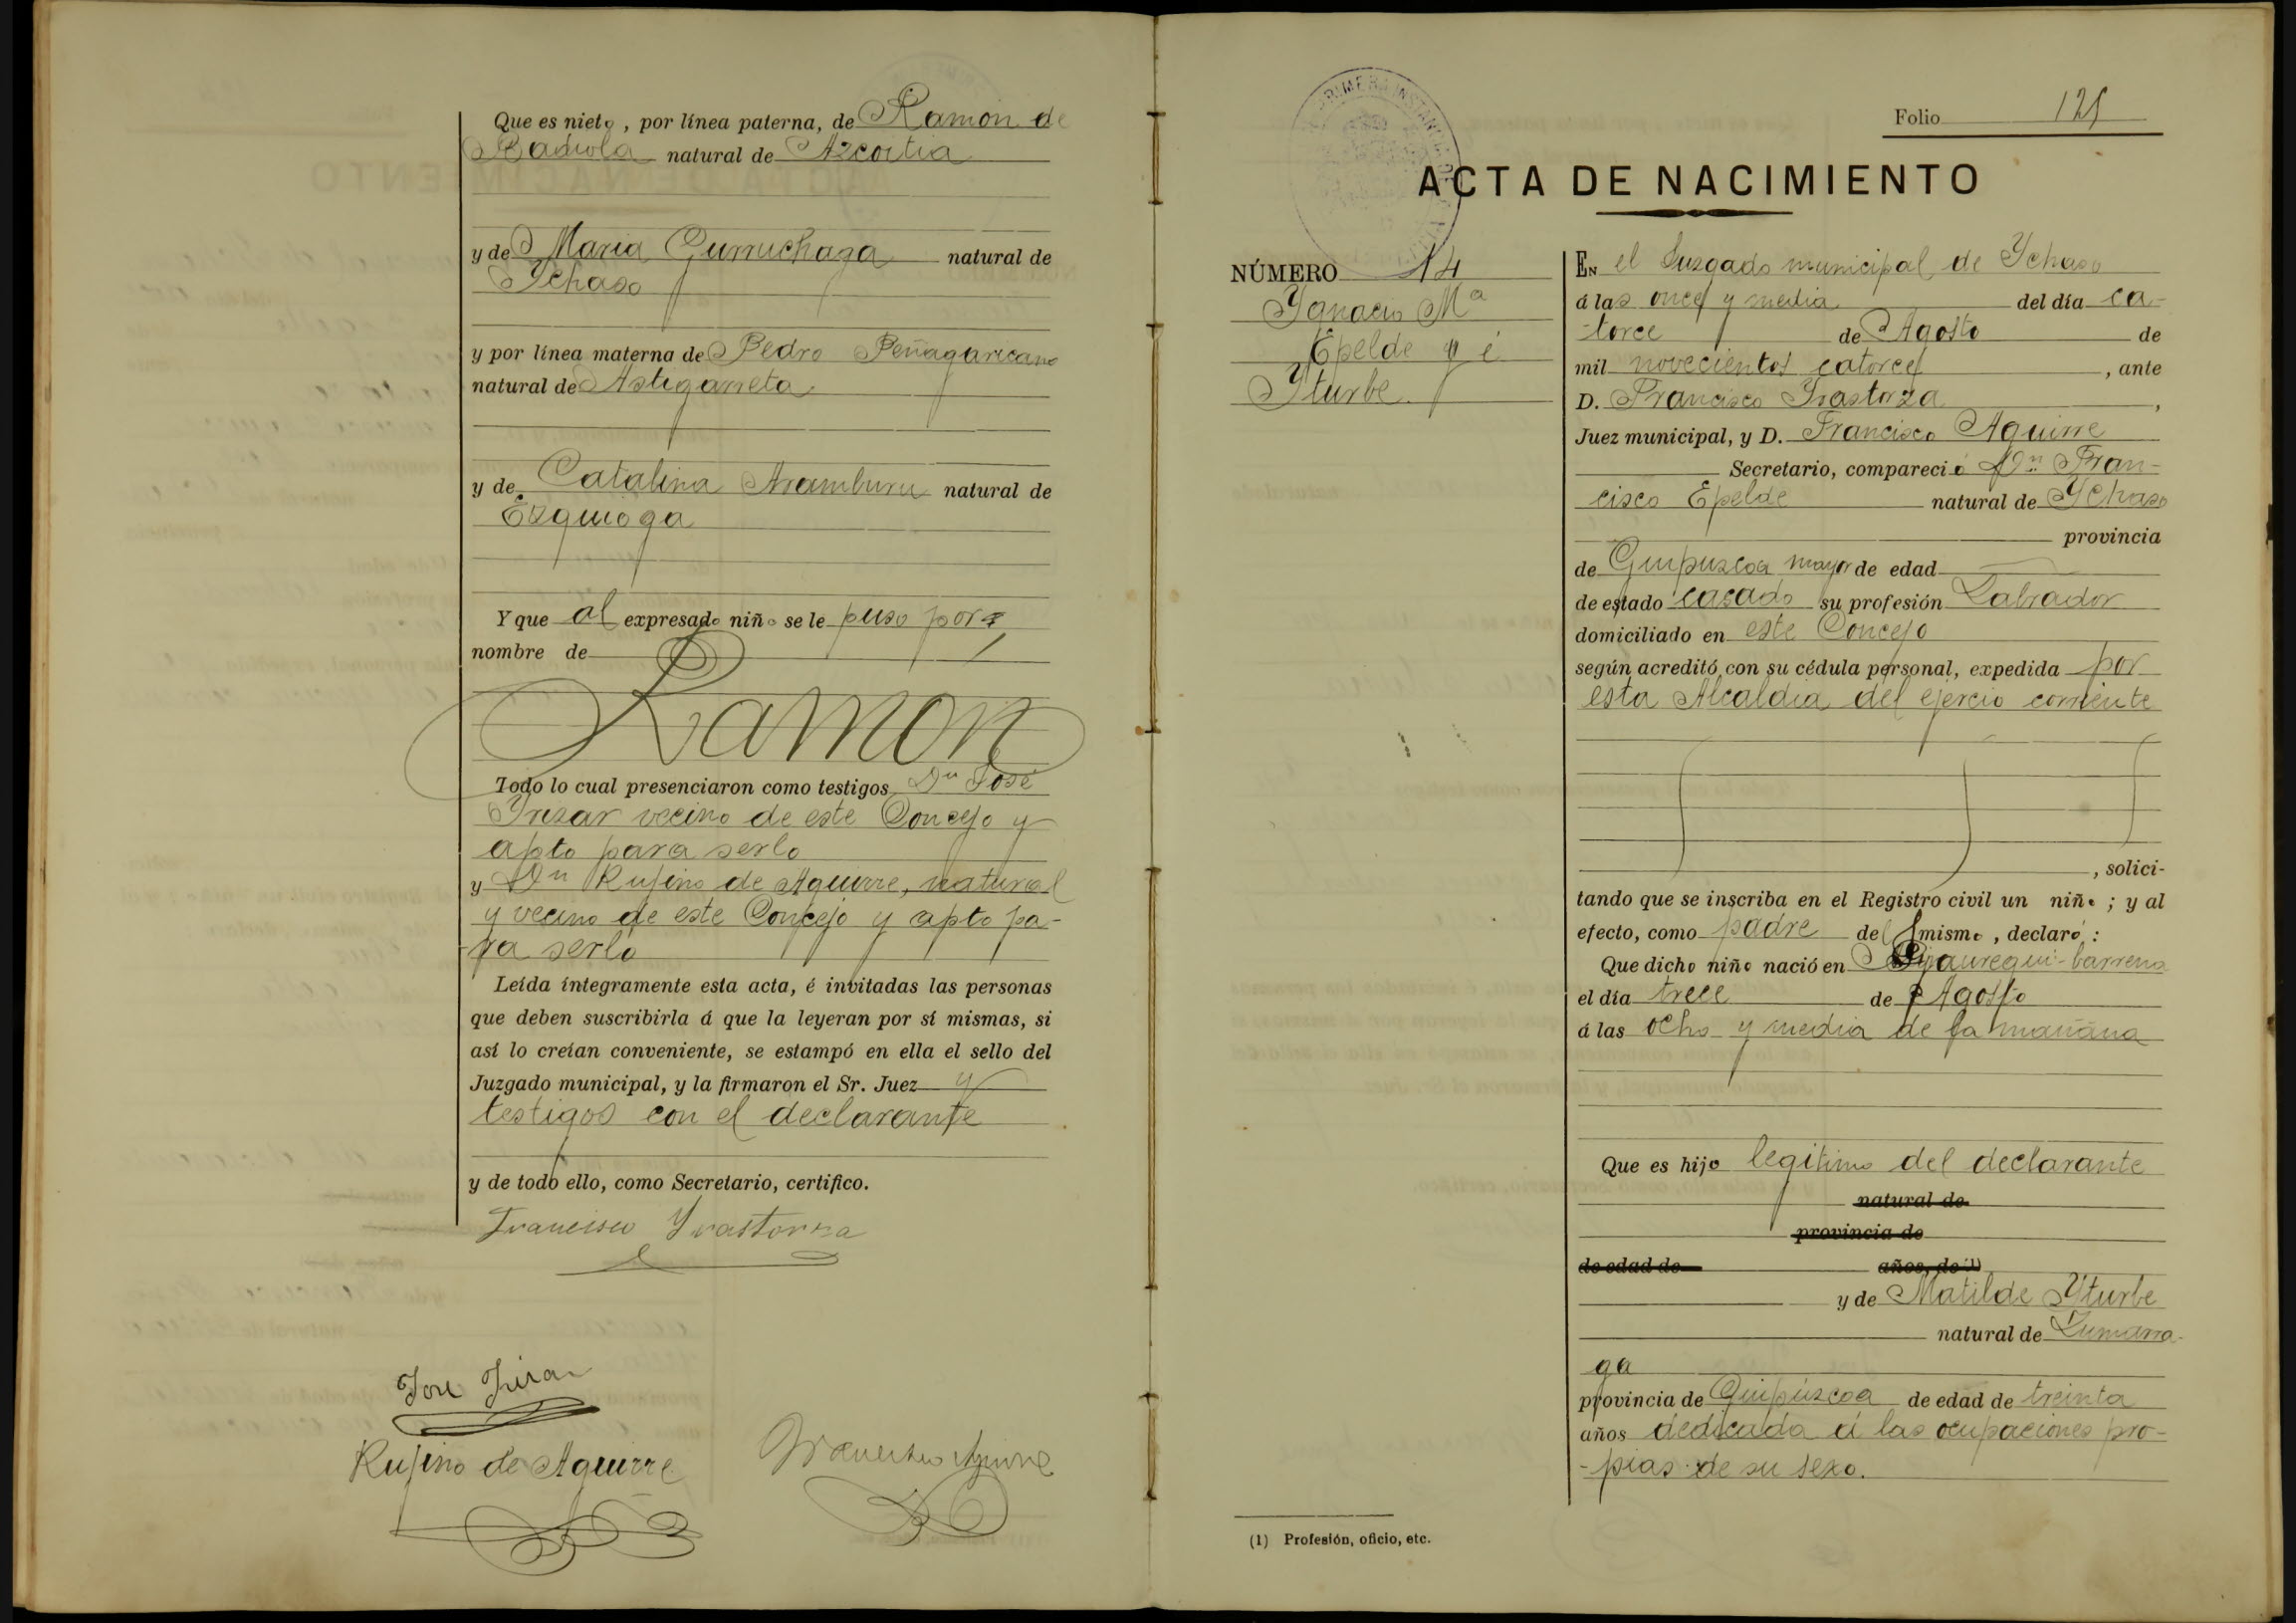 Que es nieto, por línea paterna, de Ramón de
Badiola natural de Azcoitia
y de Maria Gurruchaga natural de
Ychaso
y por línea materna de Pedro Peñagaricano
natural de Astigarreta
y de Catalina Aramburu natural de
Ezquioga
Y que al expresado niño se le puso por
nombre de
Ramon
Todo lo cual presenciaron como testigos Dn José
Yrizar vecino de este Concejo y
apto para serlo
y Dn Rufino de Aguirre, natural
y vecino de este Concejo y apto pa-
ra serlo
Leída íntegramente esta acta, é invitadas las personas
que deben suscribirla á que la leyeran por sí mismas, si
así lo creían conveniente, se estampó en ella el sello del
Juzgado municipal, y la firmaron el Sr. Juez y
testigos con el declarante
y de todo ello, como Secretario, certifico.
Francisco Yrastorza
José
Rufino de Aguirre
Francisco Aguirre
PRIMERA INSTANCIA
Folio 125
ACTA DE NACIMIENTO
NÚMERO 14
Ygnacio Mª
Epelde y é
Yturbe
EN el Juzgado municipal de Ychaso
á las once y media del día ca-
-torce de Agosto de
mil novecientos catorce, ante
D. Francisco Yrastorza,
Juez municipal, y D. Francisco Aguirre
Secretario, compareció Dn Fran-
cisco Epelde natural de Ychaso
provincia
de Guipuzcoa mayor de edad
de estado casado su profesión Labrador
domiciliado en este Concejo
según acreditó con su cédula personal, expedida por
esta Alcaldia del ejercio corriente
, solici-
tando que se inscriba en el Registro civil un niño; y al
efecto, como padre del mismo, declaró:
Que dicho niño nació en Yjauregui-barrena
el día trece de Agosto
á las ocho y media de la mañana
Que es hijo legitimo del declarante
natural de
provincia de
de edad de años, de (1)
y de Matilde Yturbe
natural de Zumarra-
ga
provincia de Guipúzcoa de edad de treinta
años dedicada á las ocupaciones pro-
-pias de su sexo.
(1) Profesión, oficio, etc.